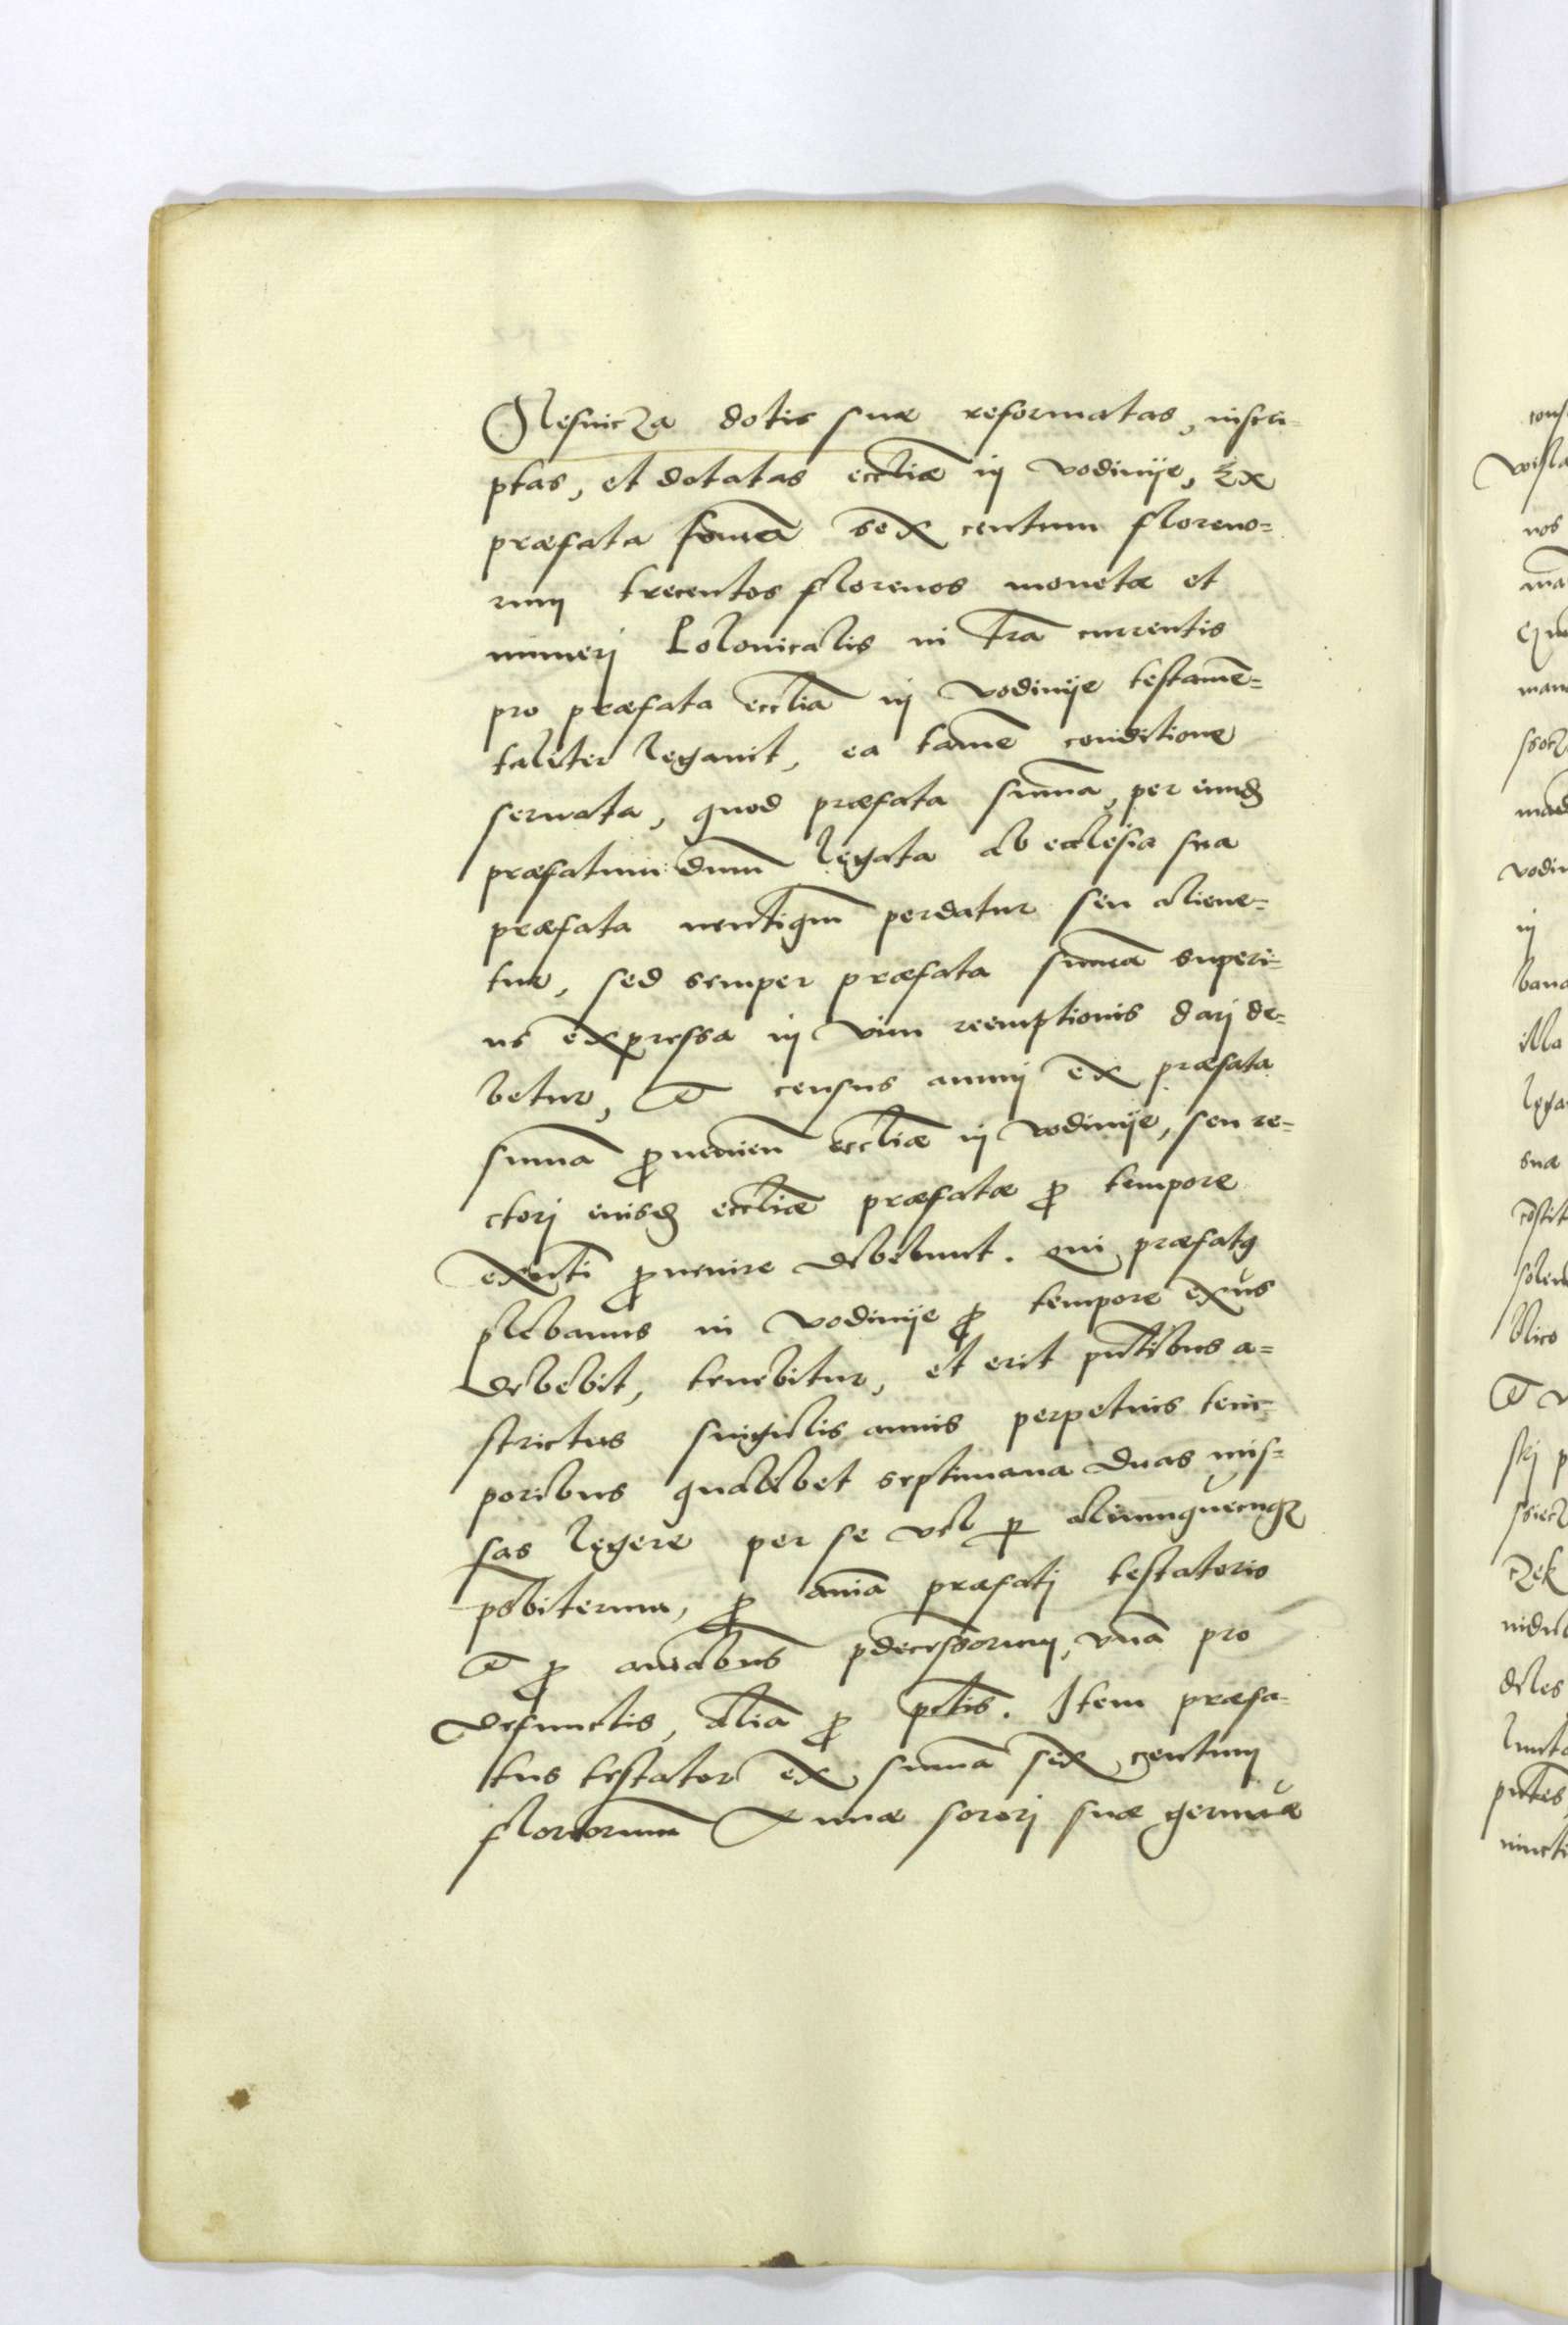 Olesnicza dotis suæ reformatas, inscri-
ptas, et dotatas eccliæ in vodinije, Ex
præfata somã sex centum floreno=
rum trecentos florenos monetæ et
numerj Polonicalis in trã currentis
pro præfata eccliã in Vodinije testamẽ=
taliter legauit, ea tamẽ conditione
seruata, quod præfata summã, per eund
præfatum dnum legata ab ecclesia sua
præfata neutiqm perdatur seu aliene=
tur, sed semper præfata summã superi=
us expressa in vim reemptionis darj de=
betur, Et census annuj ex præfata
summã prouenien eccliæ in Vodinije, seu re=
ctorj eiusd eccliæ præfatæ pro tempore
exñti prouenire debebunt. Qui præfatus
plebanus in Vodinije pro tempore exñs
debebit, tenebitur, et erit pñtibus a=
strictus singulis annis perpetuis tem=
poribus qualibet septimana duas mis=
sas legere per se vel per aliumquecunque
pbiterum, pro animã præfatj testatoris
Et pro animabus pdecessorum, vnã pro
defunctis, aliã pro pctis. Item præfa-
tus testator ex summã sex centum
florenorum Annæ sororj suæ germãæ